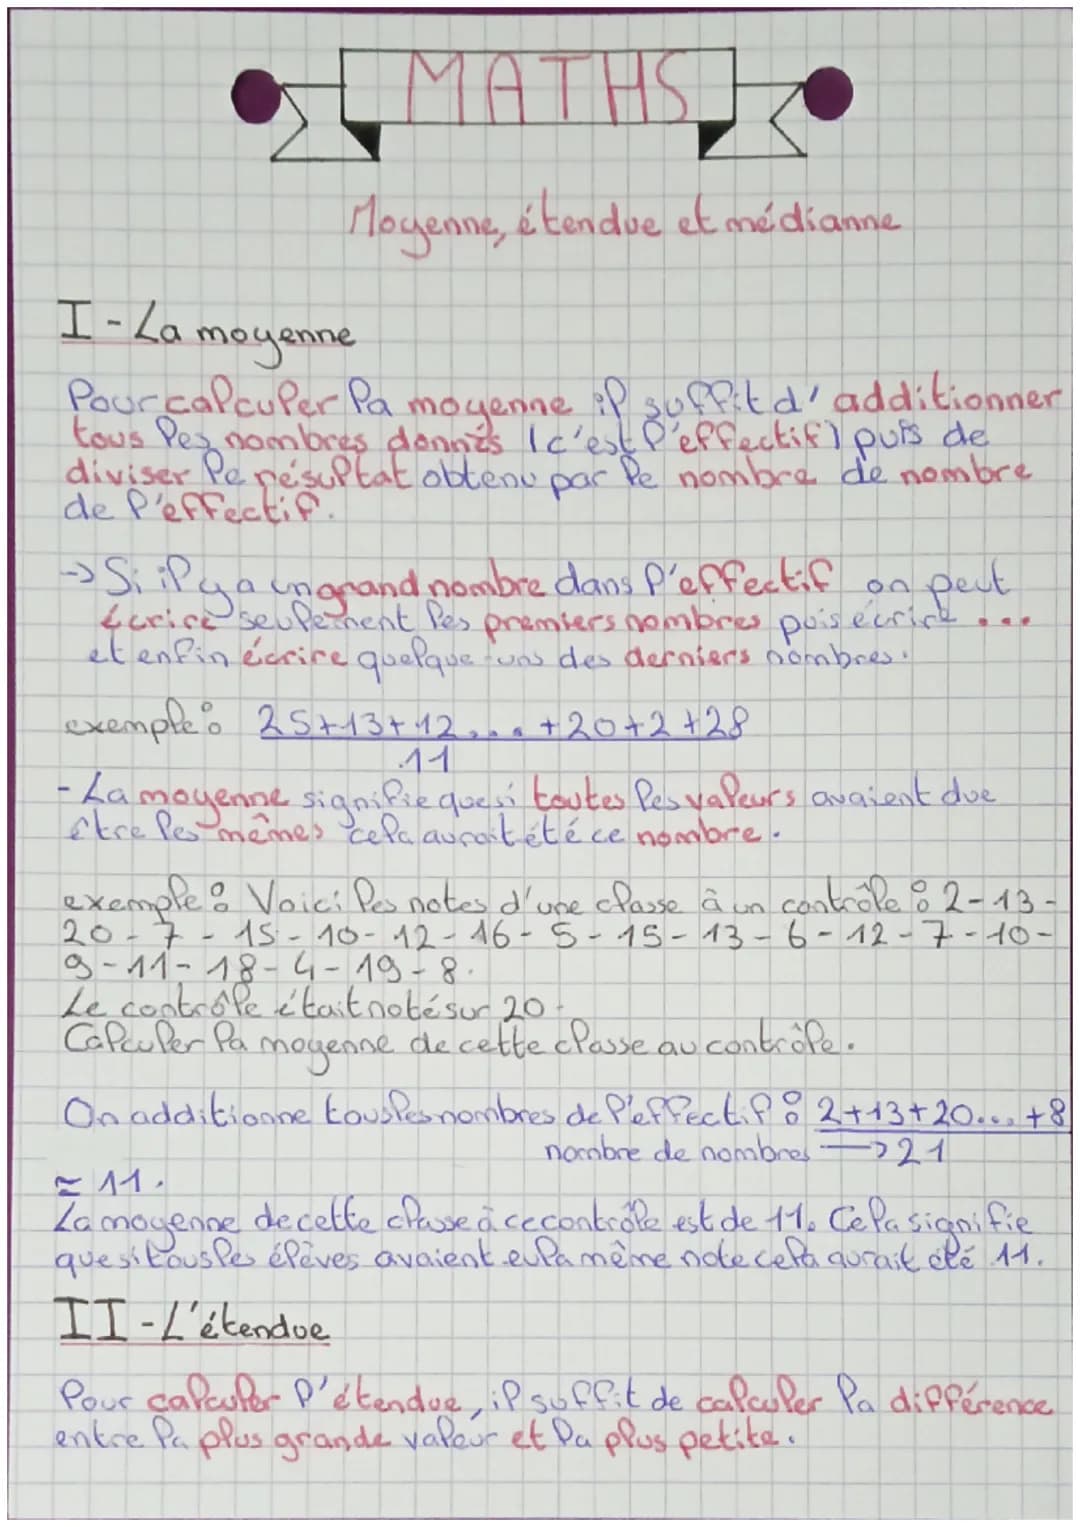 MATHS
Moyenne, étendue et médianne
I - La moyenne
Pour calculer la moyenne il suffit d'additionner
tous les nombres donnés (c'est l'effectif) puis de
diviser le résultat obtenu par le nombre de nombre
de l'effectif.
-> Si il y a un grand nombre dans l'effectif on peut
écrire seulement les premiers nombres puis écrire ...
et enfin écrire quelque-uns des derniers nombres.
exemple : 25+13+12....+20+2+28
11
- La moyenne signifie que si toutes les valeurs avaient due
être les mêmes cela aurait été ce nombre.
exemple : Voici les notes d'une classe à un contrôle : 2-13-
20-7-15-10-12-16-5-15-13-6-12-7-10-
9-11-18-4-19-8.
Le contrôle était noté sur 20.
Calculer la moyenne de cette classe au contrôle.
On additionne tous les nombres de l'effectif : 2+13+20...+8
nombre de nombres -> 21
≃ 11.
La moyenne de cette classe à ce contrôle est de 11. Cela signifie
que si tous les élèves avaient eu la même note cela aurait été 11.
II - L'étendue
Pour calculer l'étendue, il suffit de calculer la différence
entre la plus grande valeur et la plus petite.